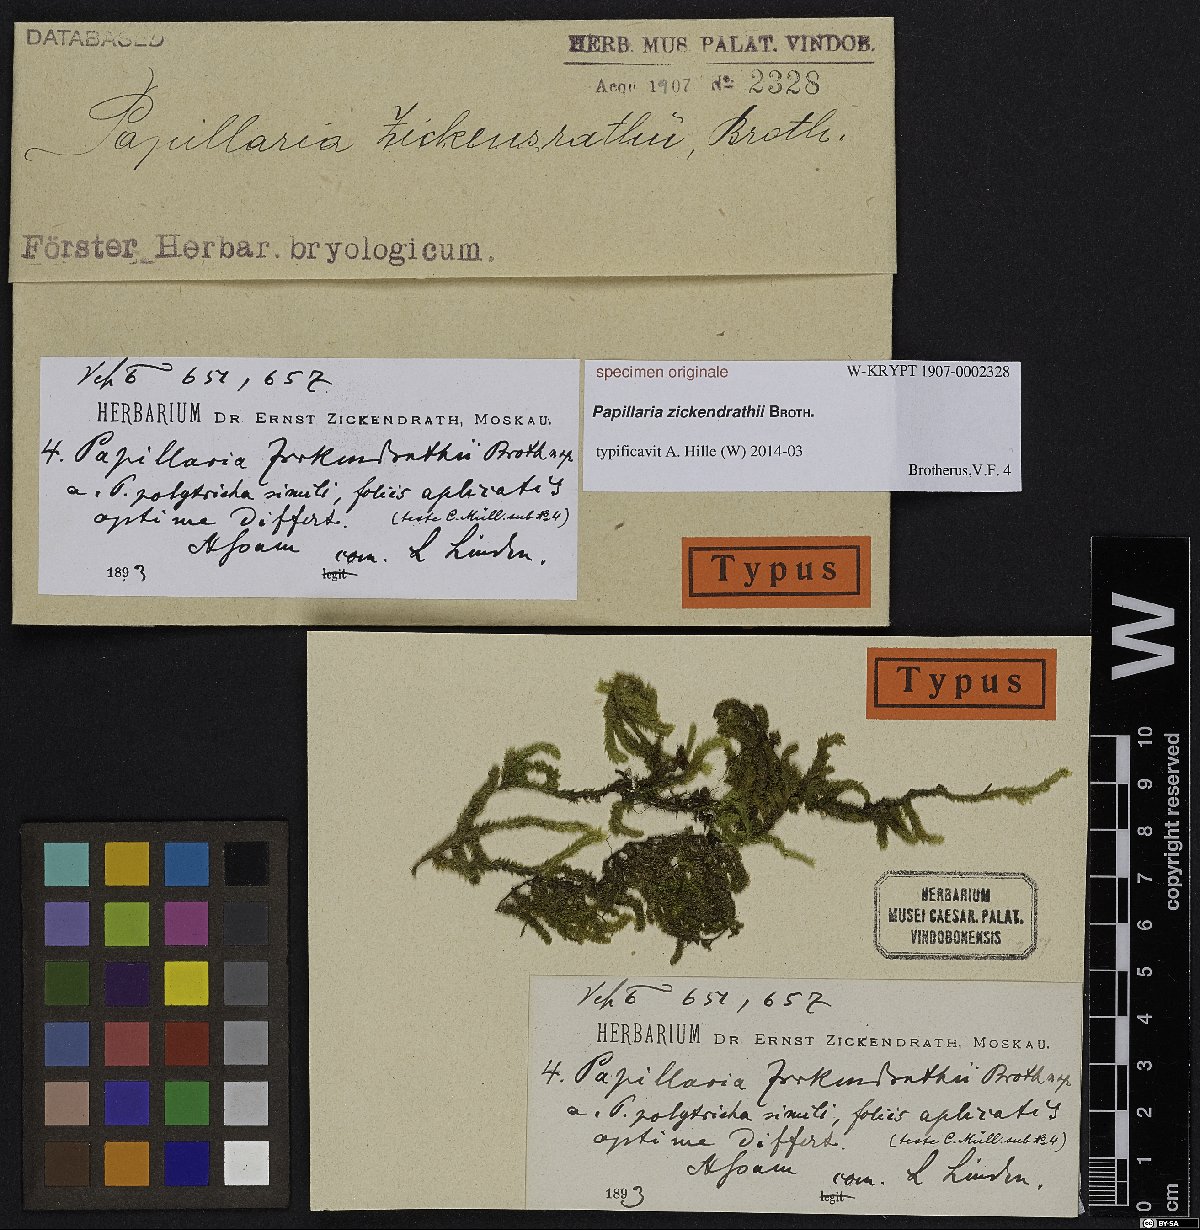 DATABASED
HERB. MUS. PALAT. VINDOB.
Acqu 1907 No 2328
Papillaria Zickensrathii, Broth.
Förster_Herbar. bryologicum.
651, 657
HERBARIUM DR ERNST ZICKENDRATH, MOSKAU.
4. Papillaria Zickendrathii Broth n sp
a. P. polytricha simili, foliis aplicatis
optime differt. (teste C. Müll. sub No 4)
Assam com. L Linden.
1893 legit
specimen originale W-KRYPT 1907-0002328
Papillaria zickendrathii BROTH.
typificavit A. Hille (W) 2014-03
Brotherus,V.F. 4
Typus
Typus
HERBARIUM
MUSEI CAESAR. PALAT.
VINDOBONENSIS
651, 657
HERBARIUM DR ERNST ZICKENDRATH, MOSKAU.
4. Papillaria Zickendrathii Broth n sp
a. P. polytricha simili, foliis aplicatis
optime differt. (teste C. Müll. sub No 4)
Assam com. L Linden.
1893 legit
W
10
9
8
7
6
5
4
3
2
1
0
cm
copyright reserved
cc BY-SA